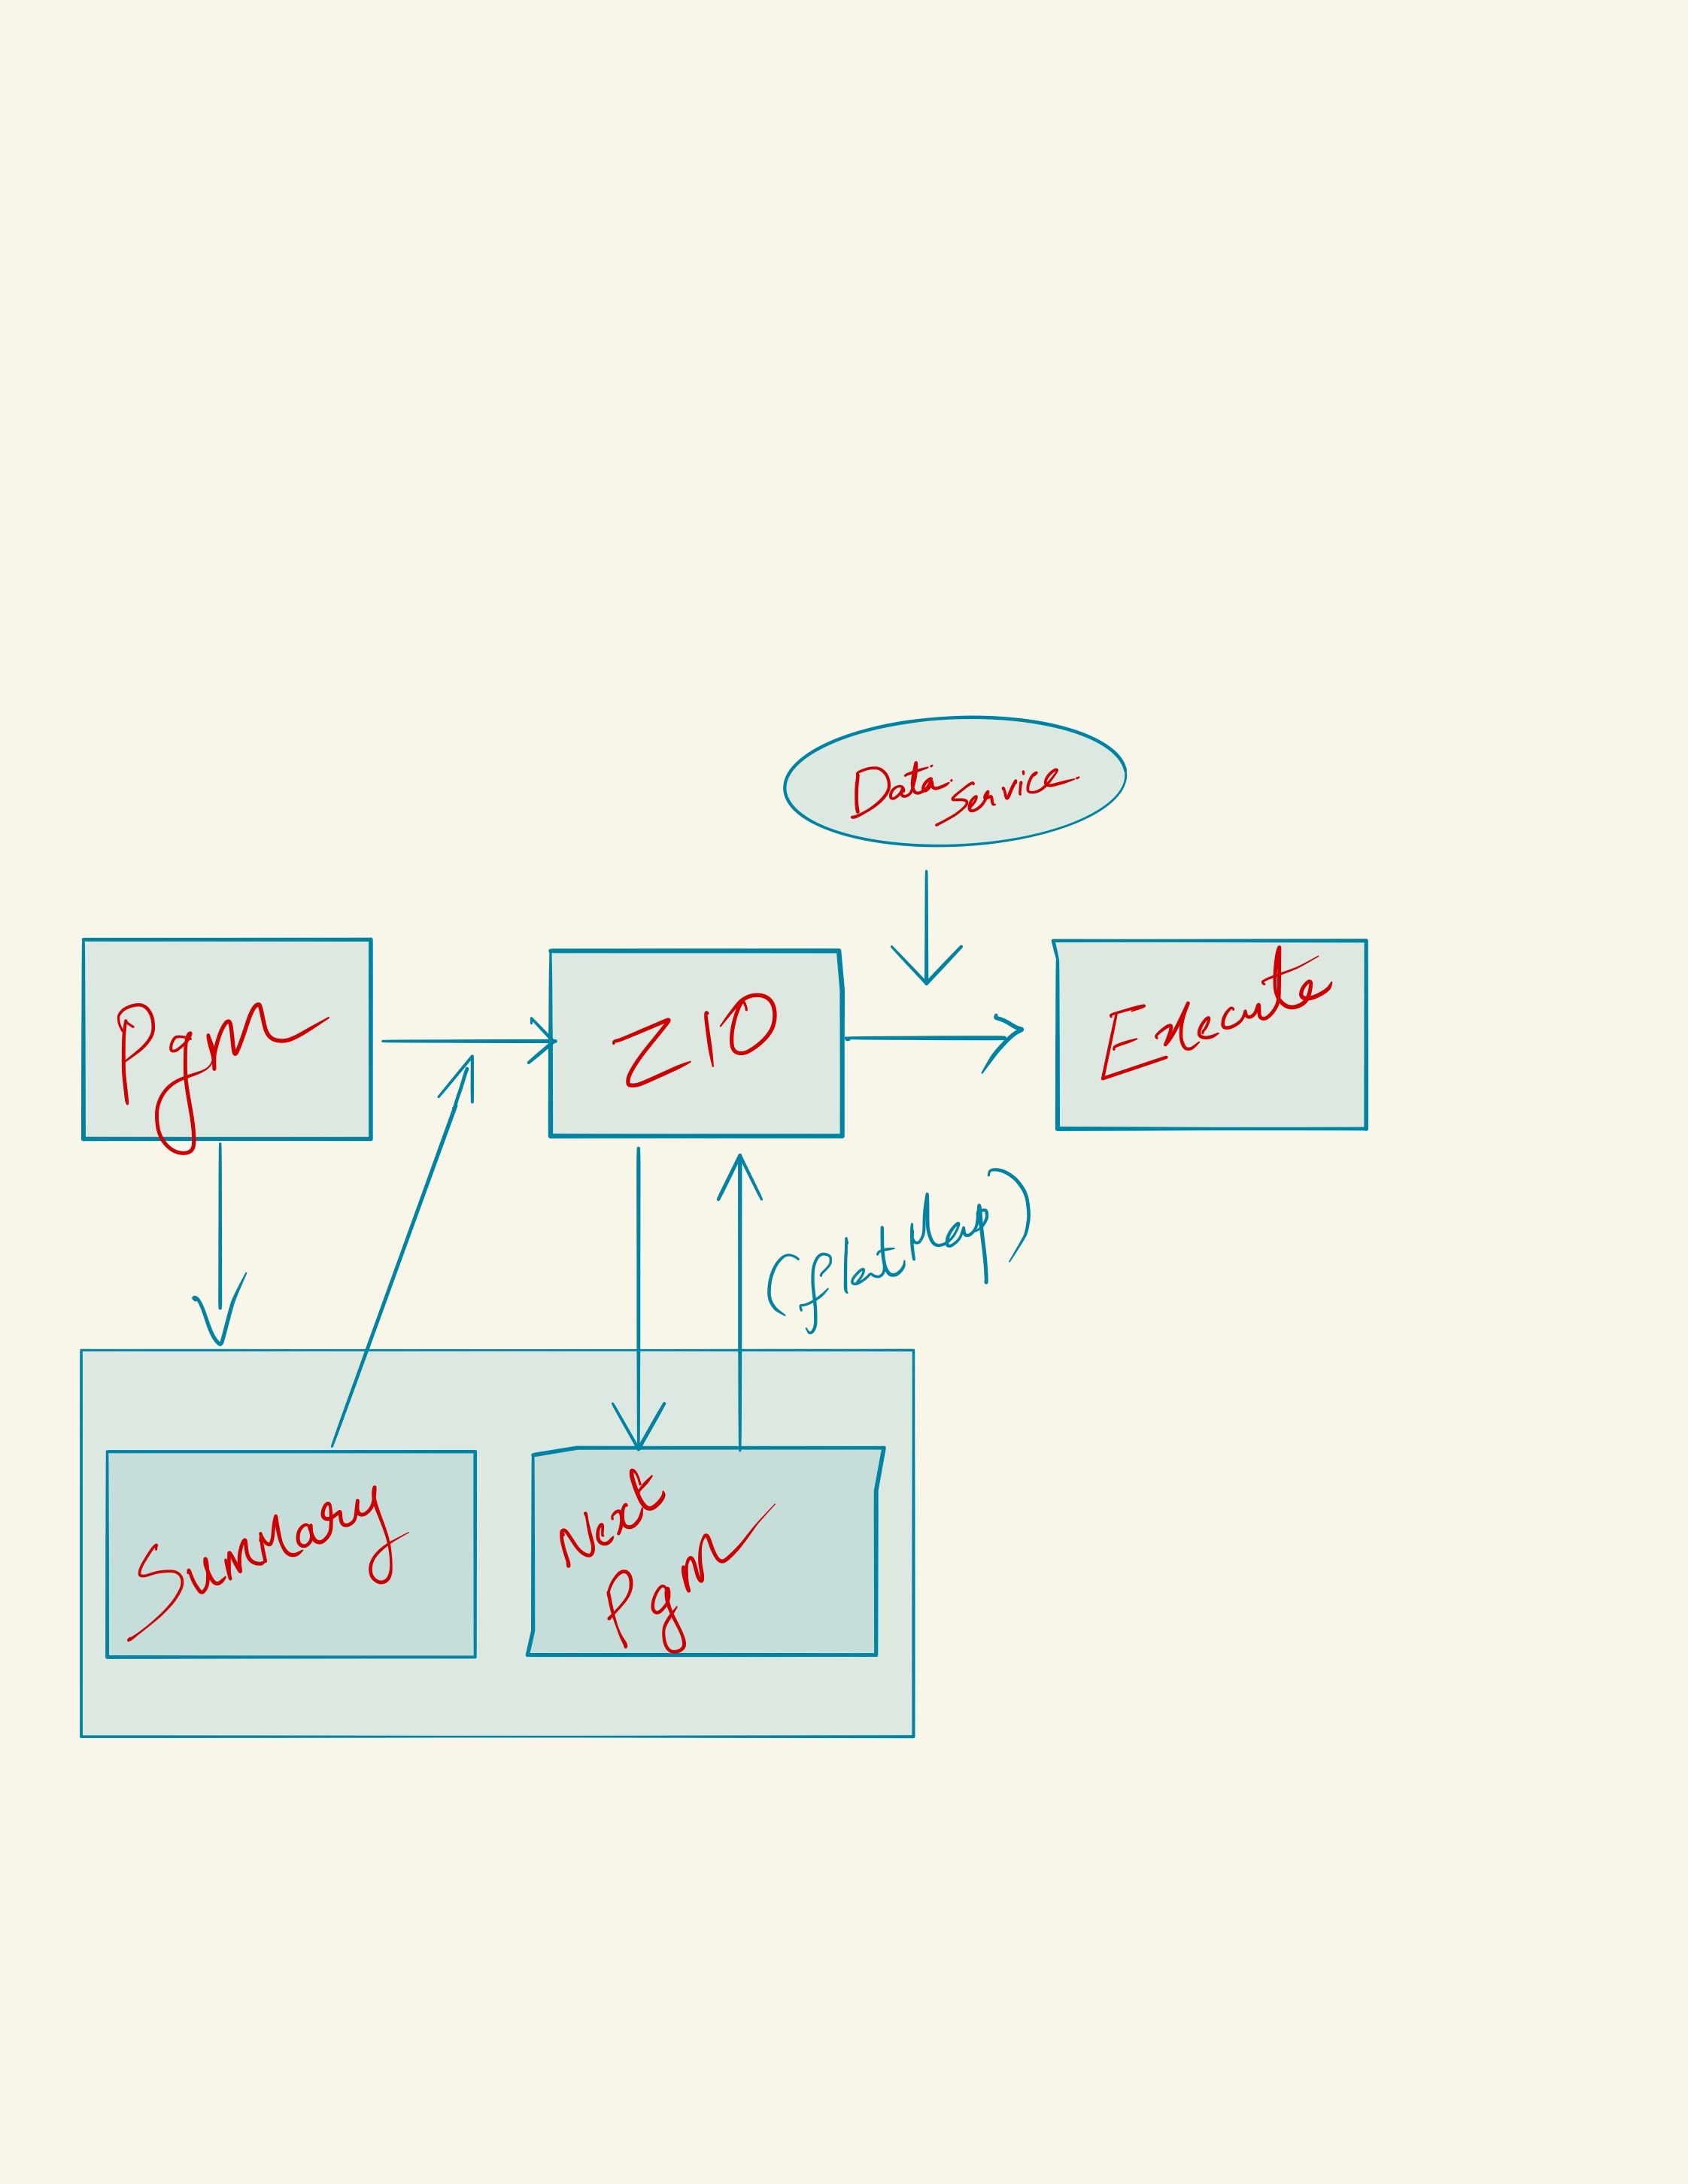 Data Service
Pgm
ZIO
Execute
(flatMap)
Summary
Next
Pgm